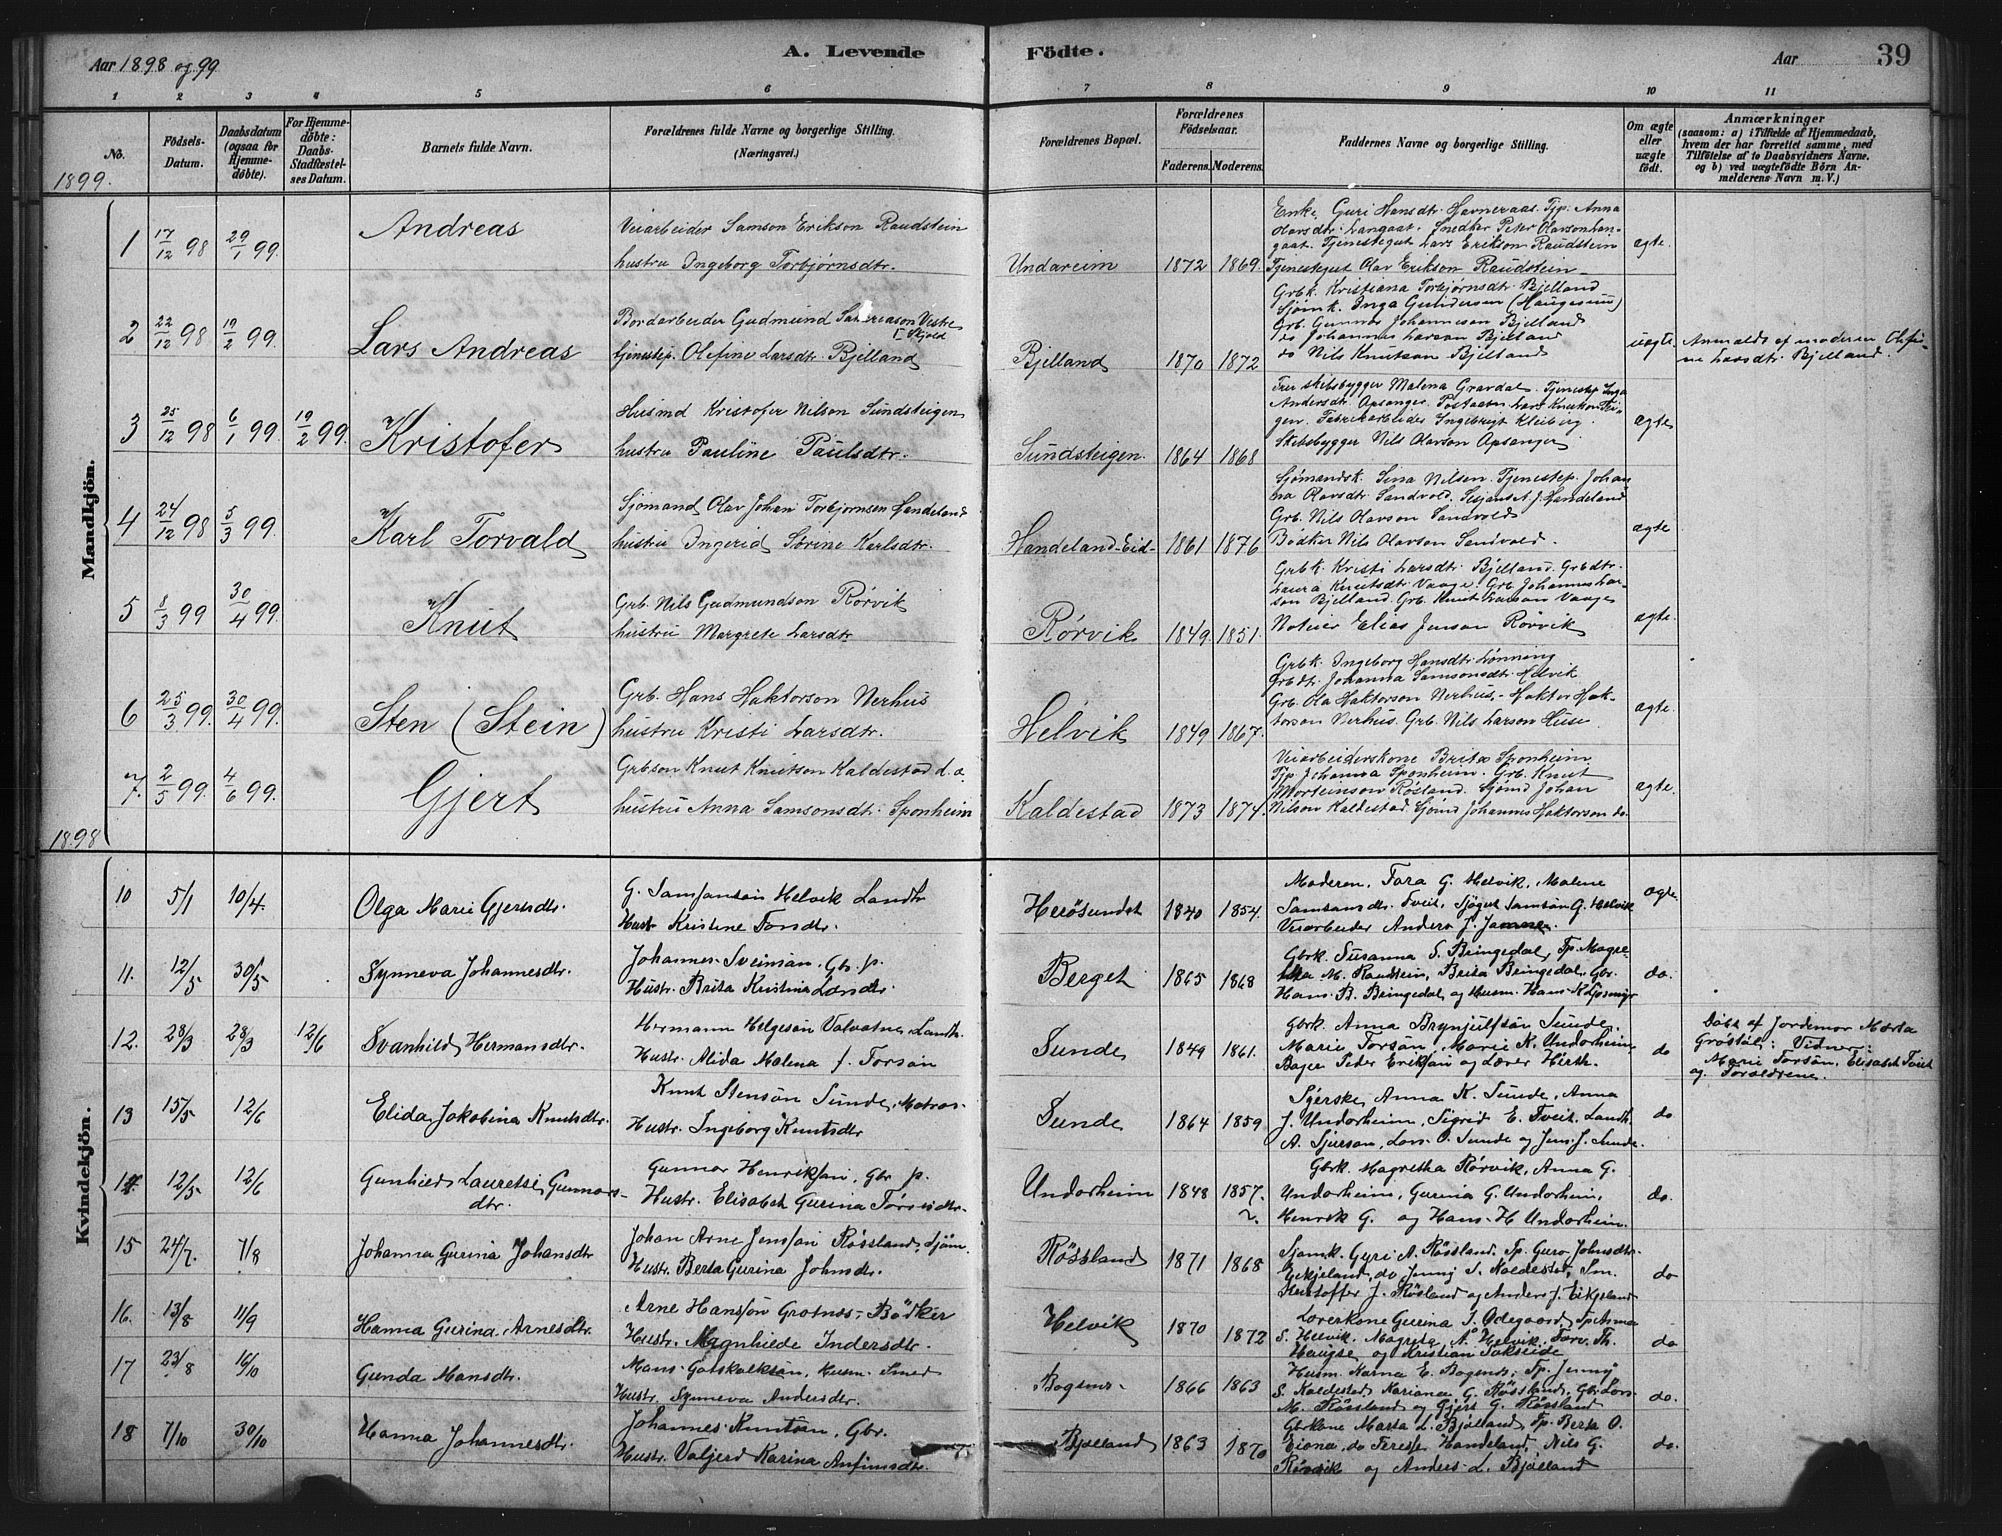 Aar 1898 og 99
A. Levende Födte.
Aar
39
1 2 3 4 5 6 7 8 9 10 11
No.
Födsels-Datum.
Daabsdatum (ogsaa for Hjemme-döbte).
For Hjemme-döbte: Daabs-Stadfæstel-ses Datum.
Barnets fulde Navn.
Forældrenes fulde Navne og borgerlige Stilling.
(Næringsvei.)
Forældrenes Bopæl.
Forældrenes Födselsaar.
Faderens. Moderens.
Faddernes Navne og borgerlige Stilling.
Om ægte eller uægte födt.
Anmærkninger
(saasom: a) i Tilfælde af Hjemmedaab, hvem der har forrettet samme, med Tilföielse af to Daabsvidners Navne. og b) ved uægtefödte Börn An-melderens Navn m. V.)
1899.
Mandkjön.
1 17/12 98 29/1 99. Andreas
Veiarbeider Samson Erikson Raudstein
hustru Ingeborg Torbjørnsdtr.
Undareim 1872 1869.
Enke Guri Hansdtr. Havneraas. Tjp. Anna
Olavsdtr. Langaat. Snedker Peter Olavson Lan-
gaat. Tjenestegut Lars Erikson Raudstein
Tjenestegut Olav Erikson Raudstein
ægte.
2 22/12 98 19/2 99. Lars Andreas
Bordarbeider Gudmund Vestre
Skjold
tjenestep. Olefine Larsdtr. Bjelland
Bjelland 1870 1872
Grbk. Kristiana Torbjørnsdtr. Bjelland
Sjømk. Inga Gundersen (Haugesund)
Grb. Gunnar Johanneson Bjelland
do Johannes Larson Bjelland
do Nils Knutson Bjelland
uægte.
Anmeldt af moderen Olefi-
ne Larsdtr. Bjelland.
3 25/12 98 6/1 99. 19/2 99. Kristofer
Husmd Kristofer Nilson Sundsteigen
hustru Pauline Paulsdtr.
Sundsteigen. 1864 1868
Fru skibsbygger Malena Gravdal. Tjenestep. Inga
Andersdtr. Apsanger. Lars Knutson
gen. Fabrikarbeider Ingebrigt Kleiberg.
Skibsbygger Nils Olavson Apsanger
ægte
4 24/12 98 5/3 99. Karl Torvald
Sjömand Olav Johan Torbjørnsen Handeland
hustru Ingerid Sørine Karlsdtr.
Handeland-Eid- 1861 1876
Sjømandsk. Sina Nilsen. Tjenestep. Johan
na Olavsdtr. Sandvold. J. Handeland
Grb. Nils Olavson Sandvold
Bødker Nils Olavson Sandvold.
ægte
5 8/3 99 30/4 99. Knut
Grb. Nils Gudmundson Rörvik
hustru Margrete Larsdtr
Rörvik 1849. 1851.
Grbk Kristi Larsdtr. Bjelland. Grbdtr.
Laura Knutsdtr. Vaage. Grb. Johannes Lar-
son Bjelland. Grb. Knut Larson Vaage
Notuier Elias Jenson Rörvik
ægte.
6 25/3 99. 30/4 99. Sten (Stein)
Grb. Hans Haktorson Nerhus
hustru Kristi Larsdtr.
Helvik 1849 1867.
Grbk. Ingeborg Hansdtr. Lønning
Grbdtr. Johanna Samsonsdtr. Helvik
Grb. Ola Haktorson Nerhus. Haktor Hak-
torson Nerhus. Grb. Nils Larson Huse
ægte.
7. 2/5 99. 4/6 99. Gjert
Grbson Knut Knutson Kaldestad d. a.
hustru Anna Samsonsdtr. Sponheim
Kaldestad 1873 1874.
Veiarbeiderskone Brita Sponheim
Tjp. Johanna Sponheim. Grb. Knut
Morteinson Røsland. Sjømd Johan
Nilson Kaldestad. Sjömd Johannes Haktorson do.
ægte.
1898
Kvindekjön.
10 5/1 10/4. Olga Marie Gjertsdtr.
G. Samsonsön Helvik Landh
Hust. Kristine Tonsdtr.
Herösundet 1840 1854.
Moderen, Tora G. Helvik, Malene
Samsonsdtr. Tveit, Sjøgut Samson G. Helvik
Veiarbeider Anders J.
ægte.
11. 12/5 30/5 Synneva Johannesdtr.
Johannes Sveinsön, Gbr. p.
Hustr. Brita Kristina Larsdtr.
Berget 1865 1868
Gbrk. Susanna S. Bringedal, Tp. Magre-
tha M. Raustein, Brita Bringedal, Gbr.
Hans B. Bringedal, og Husm. Hans
do.
12. 28/3 28/3 12/6 Svanhild Hermansdtr.
Hermann Helgesön Valvatne, Landh.
Hustr. Alida Malena f. Torsön
Sunde 1849 1861.
Gbrk. Anna Brynjulfsön Sunde,
Marie Torsön, Marie K. Undorheim,
Bager Peder Eriksön og Lærer Hirth.
do
Döbt af Jordemor Marta
Grostöl; Vidner:
Marie Torsön, Elisabet Tveit
og Forældrene.
13 15/5 12/6 Elida Jakobina Knutsdtr.
Knut Stensön Sunde, Matros
Hustr. Ingeborg Knutsdtr
Sunde 1864 1859
Anna K. Sunde, Anna
J. Undorheim, Sigrid E. Tveit, Landh.
A. Sjurson, Lars O. Sunde og Jens J. Sunde.
do
14. 12/5 12/6 Gunhild Lauretse Gunnars-
dtr.
Gunnar Henriksön, Gbr p.
Hustr. Elisabet Gurina Tørresdtr.
Undorheim 1848 1857.
2.
Gbrk. Magretha Rörvik, Anna G.
Undorheim, Gurina G. Undorheim,
Henrik G. og Hans H Undorheim.
do.
15 24/7. 7/8 Johanna Gurina Johansdtr
Johan Arne Jenssön Røssland, Sjöm.
Hustr. Berta Gurina Johnsdtr.
Røssland 1871 1868
Sjømk. Gyri A. Røssland, Tp. Guro Johnsdtr.
Eikjeland, do Jenny S. Kaldestad, Sm.
Kristoffer J. Røsland og Anders J. Eikjeland
do
16. 13/8 11/9 Hanna Gurina Arnesdtr.
Arne Hanssön Grotnes, Bödker
Hustr. Magnhilde Indersdtr.
Helvik 1870 1872
Lærerkone Gurina I. Ödegaard, Tp. Anna
S. Helvik, Magreta A. Helvik, Th.
Haugse og Kristian Tokseide
do
17 23/8 16/10 Gunda Mansdtr.
Mans Gotskalksön, Husm. Smed
Hustr. Synneva Andersdtr.
Bogsnes 1866 1863
Husm. Karna E. Bogsnes, Tp. Jenny
S. Kaldestad, Kariana G. Røssland, Gbr. Lars
M. Røssland og Gjert G. Røssland
do.
18 7/10 30/10 Hanna Johannesdtr.
Johannes Knutsön, Gbr.
Hustr. Valjerd Karina Anfinnsdtr.
Bjelland 1863 1870
Gbrkone Marta L. Bjelland, Tp. Berta O.
Eiona, do Terese Handeland, Nils G.
Rörvik og Anders L. Bjelland
do.